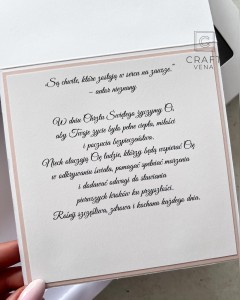 CRAFT
VENA
„Są chwile, które zostają w sercu na zawsze.”
- autor nieznany
W dniu Chrztu Świętego życzymy Ci,
aby Twoje życie było pełne ciepła, miłości
i poczucia bezpieczeństwa.
Niech otaczają Cię ludzie, którzy będą wspierać Cię
w odkrywaniu świata, pomagać spełniać marzenia
i dodawać odwagi do stawiania
pierwszych kroków ku przyszłości.
Rośnij szczęśliwa, zdrowa i kochana każdego dnia.